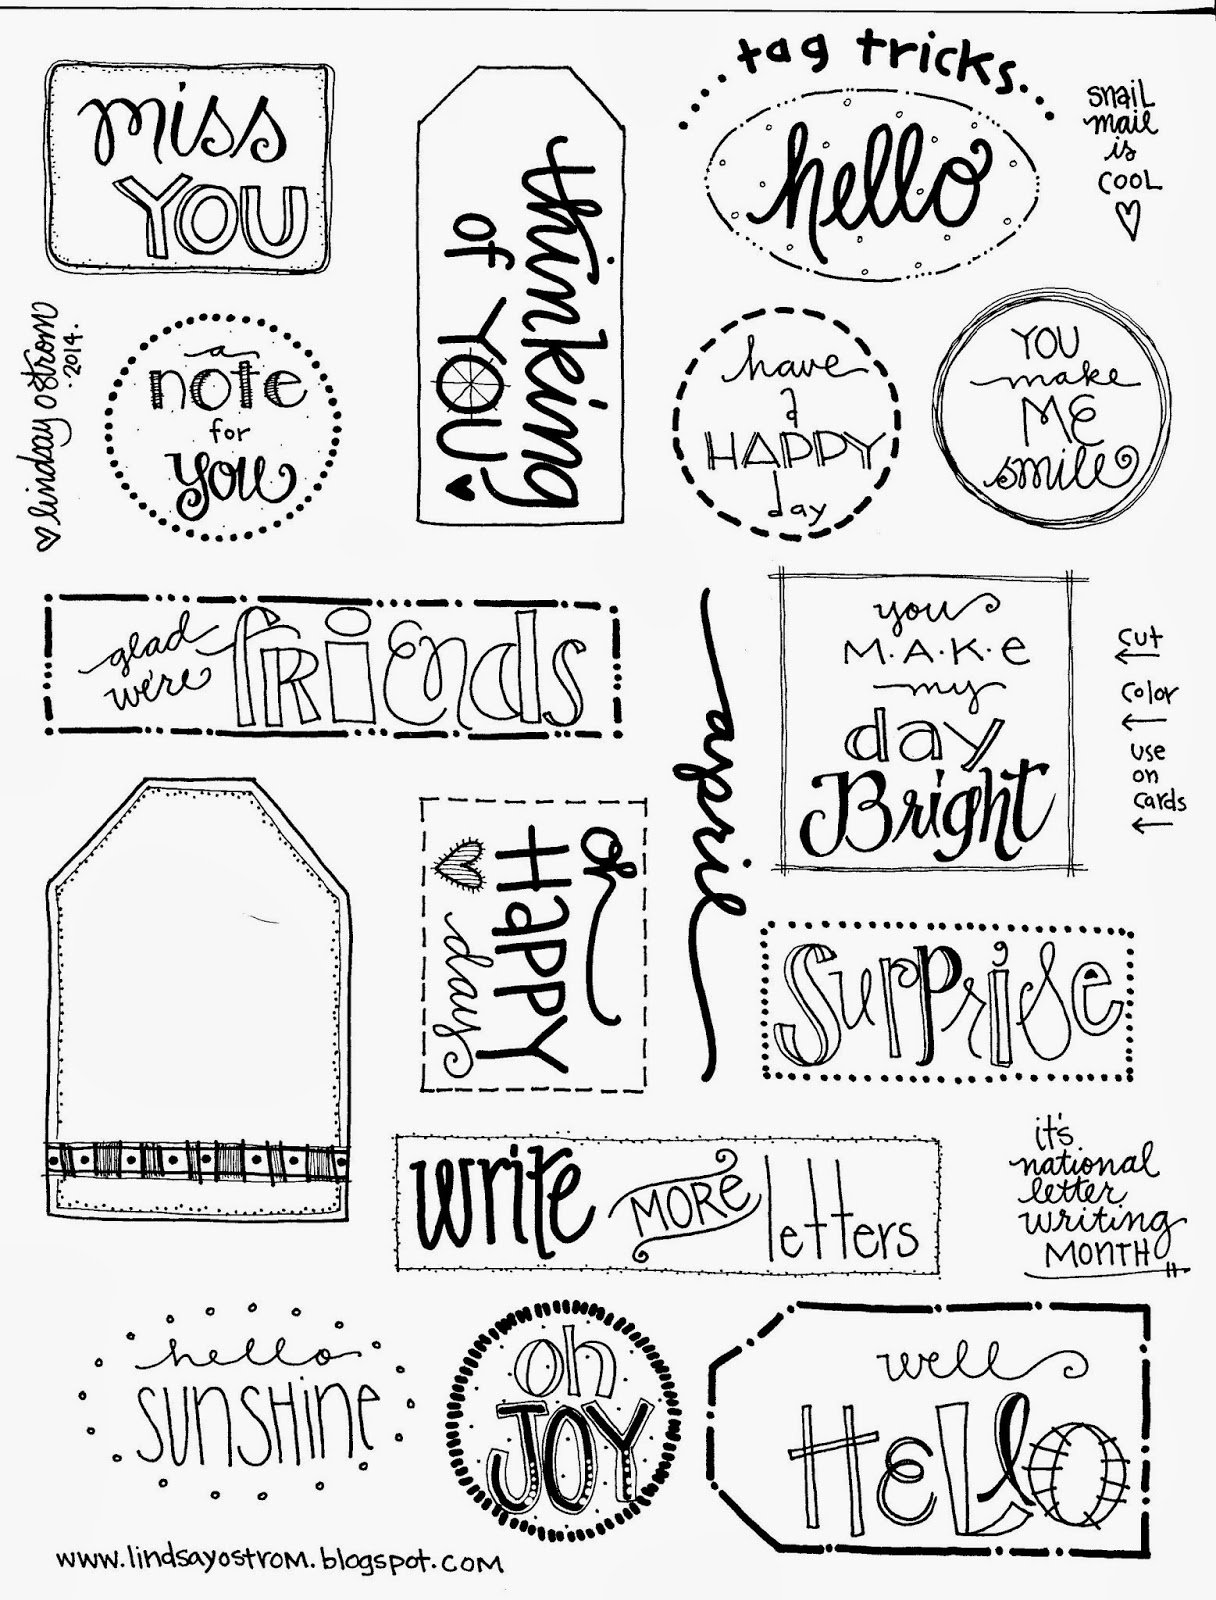 tag tricks
miss
YOU
thinking
of YOU
hello
snail
mail
is
COOL
lindsay ostrom
.2014.
a
note
for
you
have
a
HAPPY
day
YOU
make
ME
smile
glad
we're
friends
april
you
M·A·K·e
my
day
Bright
cut
color
use
on
cards
oh
HAPPY
days
surprise
write MORE letters
it's
national
letter
writing
MONTH
hello
sunshine
oh
JOY
well
HeLLO
www.lindsayostrom.blogspot.com